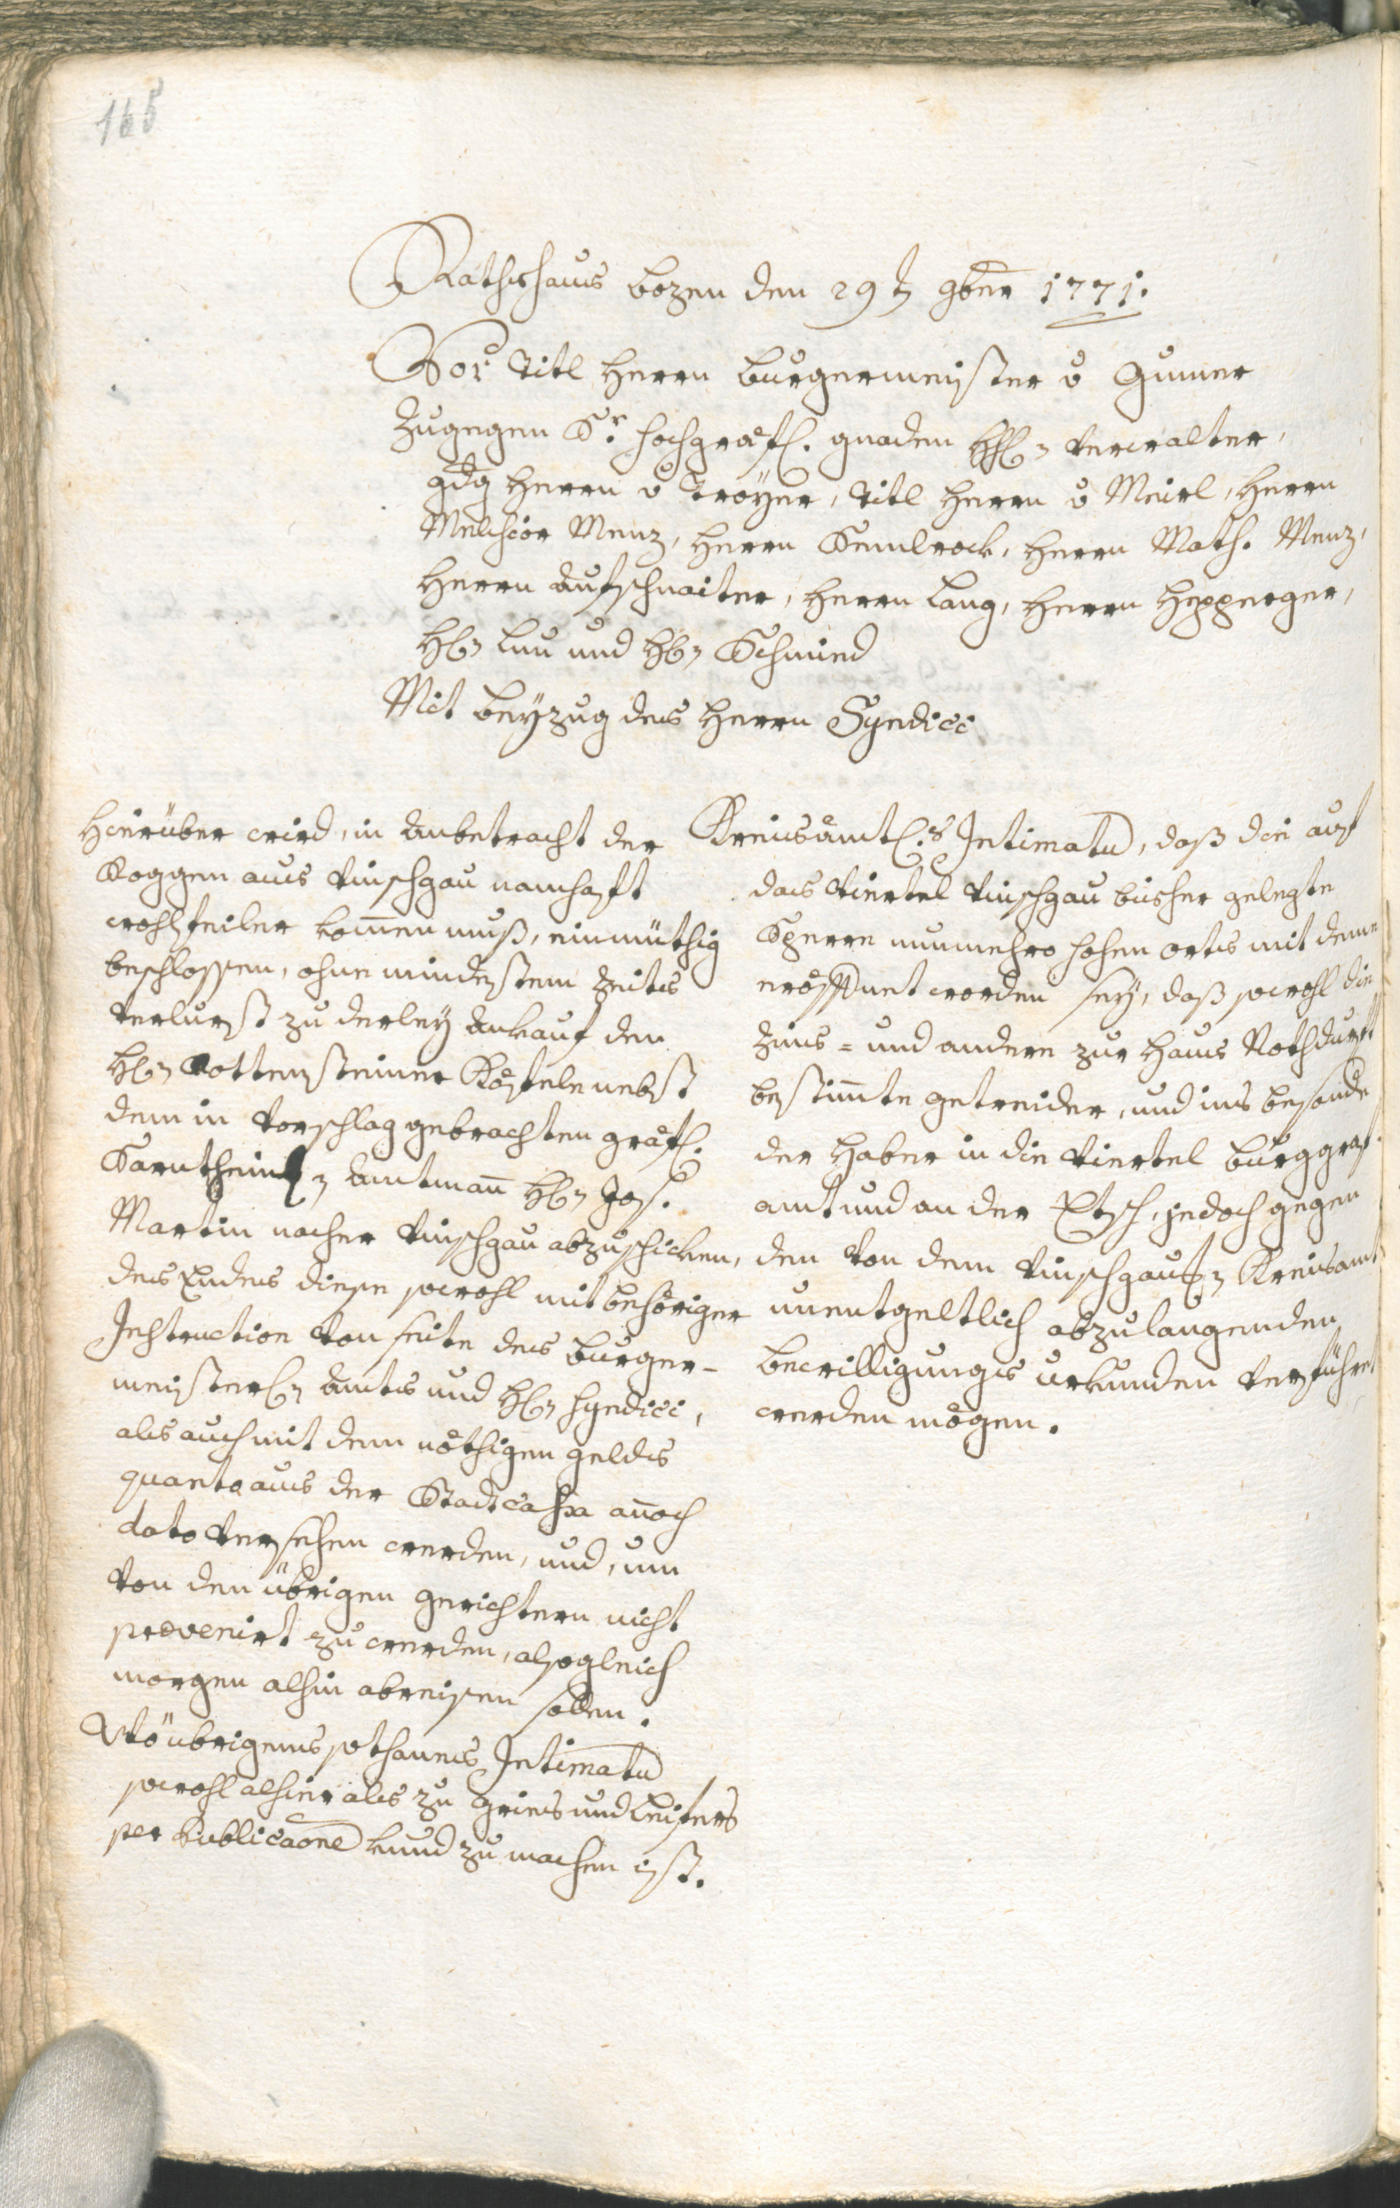 165
Rathshaus Bozen den 29t 9ber 1771.
Vor Titl Herrn Burgermeister v Gumer
Zugegen Sr hochgräfl. gnaden Hl Verwalter,
gdg Herrn v Troyer, Titl Herrn v Meirl, Herrn
Melchior Menz, Herrn Kemlrock, Herrn Math. Menz,
Herrn Aufschnaiter, Herrn Lang, Herrn Hepperger,
Hl und Hl Schmid
Mit beyzug des Herrn Syndici
Hierüber wird, in Anbetracht der
Roggen aus Vinschgau namhaft
wohlfeiler kommen muß, einmüthig
beschlossen, ohne mindestem Zeits
verlurst zu derley Ankauf den
Hl Rottensteiner Kästele nebst
dem in Vorschlag gebrachten gräfl.
Sarnthein Amtmann Hl Jos.
Martin nacher Vinschgau abzuschicken,
des Endes diese sowohl mit behöriger
Instruction von seite des Burger-
meister Amts und Hl Syndici,
als auch mit dem nöthigen gelds
quanto aus der Stadt cassa annoch
dato versehen werden, und, um
von den übrigen gerichtern nicht
prevenirt zu werden, alsogleich
morgen alhin abreisen sollen.
Wo übrigens sothanes Intimatu
sowohl alhier als zu Gries und Leifers
per Publicaone kund zu machen ist.
Kreisämtl.s Intimatu, daß die auf
das Viertel Vinschgau bisher gelegte
Sperre nunmehro hohen orts mit deme
eröffnet worden sey, daß sowohl die
Zins- und andere zur Haus Nothdurft
bestimmte getreider, und ins besonde
der Haber in die Viertel Burggraf-
amt und an der Etsch, jedoch gegen
den von dem Vinschgau Kreisamt
unentgeltlich abzulangenden
bewilligungs urkunden verführet
werden mögen.